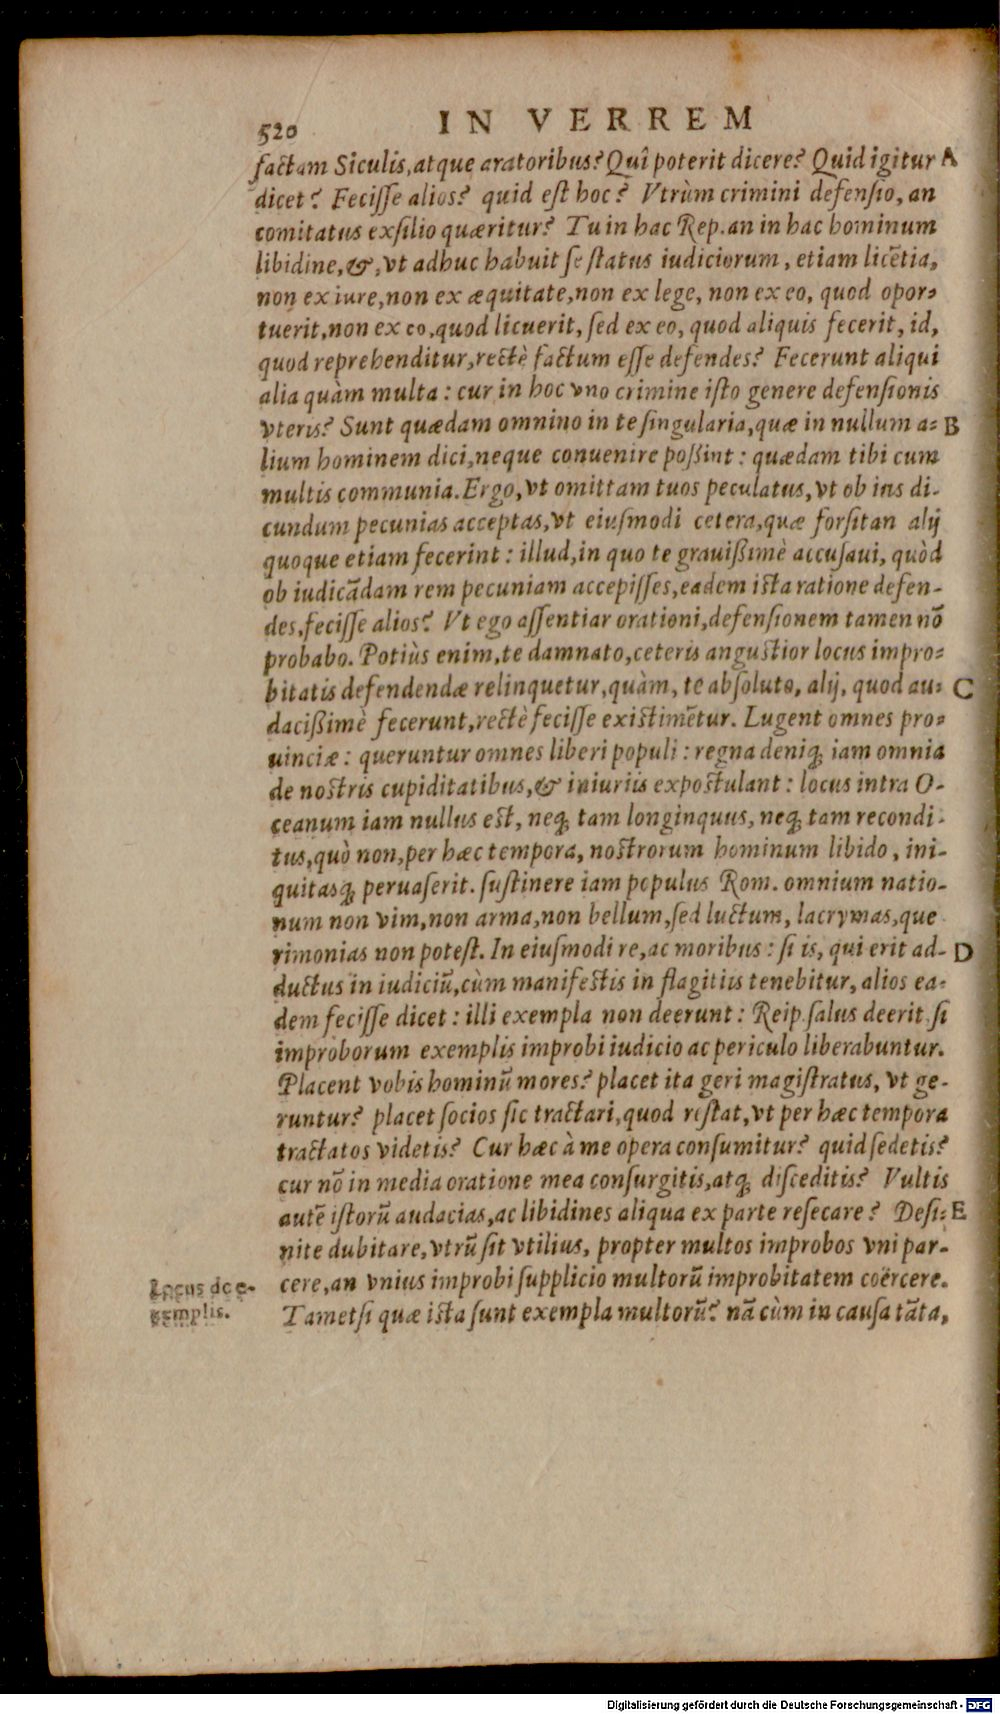 520
IN VERREM
factam Siculis, atque aratoribus? Quî poterit dicere? Quid igitur A
dicet? Fecisse alios? quid est hoc? Vtrùm crimini defensio, an
comitatus exsilio quæritur? Tu in hac Rep. an in hac hominum
libidine, &, vt adhuc habuit se status iudiciorum, etiam licẽtia,
non ex iure, non ex æquitate, non ex lege, non ex eo, quod opor-
tuerit, non ex eo, quod licuerit, sed ex eo, quod aliquis fecerit, id,
quod reprehenditur, rectè factum esse defendes? Fecerunt aliqui
alia quàm multa: cur in hoc vno crimine isto genere defensionis
vteris? Sunt quædam omnino in te singularia, quæ in nullum a- B
lium hominem dici, neque conuenire poßint: quædam tibi cum
multis communia. Ergo, vt omittam tuos peculatus, vt ob ius di-
cundum pecunias acceptas, vt eiusmodi cetera, quæ forsitan alij
quoque etiam fecerint: illud, in quo te grauißimè accusaui, quòd
ob iudicãdam rem pecuniam accepisses, eadem ista ratione defen-
des, fecisse alios? Vt ego assentiar orationi, defensionem tamen nõ
probabo. Potiùs enim, te damnato, ceteris angustior locus impro-
bitatis defendendæ relinquetur, quàm, te absoluto, alij, quod au- C
dacißimè fecerunt, rectè fecisse existimẽtur. Lugent omnes pro-
uinciæ: queruntur omnes liberi populi: regna deniq; iam omnia
de nostris cupiditatibus, & iniuriis expostulant: locus intra O-
ceanum iam nullus est, neq; tam longinquus, neq; tam recondi-
tus, quò non, per hæc tempora, nostrorum hominum libido, ini-
quitasq; peruaserit. sustinere iam populus Rom. omnium natio-
num non vim, non arma, non bellum, sed luctum, lacrymas, que
rimonias non potest. In eiusmodi re, ac moribus: si is, qui erit ad- D
ductus in iudiciũ, cùm manifestis in flagitiis tenebitur, alios ea-
dem fecisse dicet: illi exempla non deerunt: Reip. salus deerit, si
improborum exemplis improbi iudicio ac periculo liberabuntur.
Placent vobis hominũ mores? placet ita geri magistratus, vt ge-
runtur? placet socios sic tractari, quod restat, vt per hæc tempora
tractatos videtis? Cur hæc à me opera consumitur? quid sedetis?
cur nõ in media oratione mea consurgitis, atq; disceditis? Vultis
autẽ istorũ audacias, ac libidines aliqua ex parte resecare? Desi- E
nite dubitare, vtrũ sit vtilius, propter multos improbos vni par-
cere, an vnius improbi supplicio multorũ improbitatem coërcere.
Tametsi quæ ista sunt exempla multorũ? nã cùm in causa tãta,
Locus de e-
xemplis.
Digitalisierung gefördert durch die Deutsche Forschungsgemeinschaft - DFG